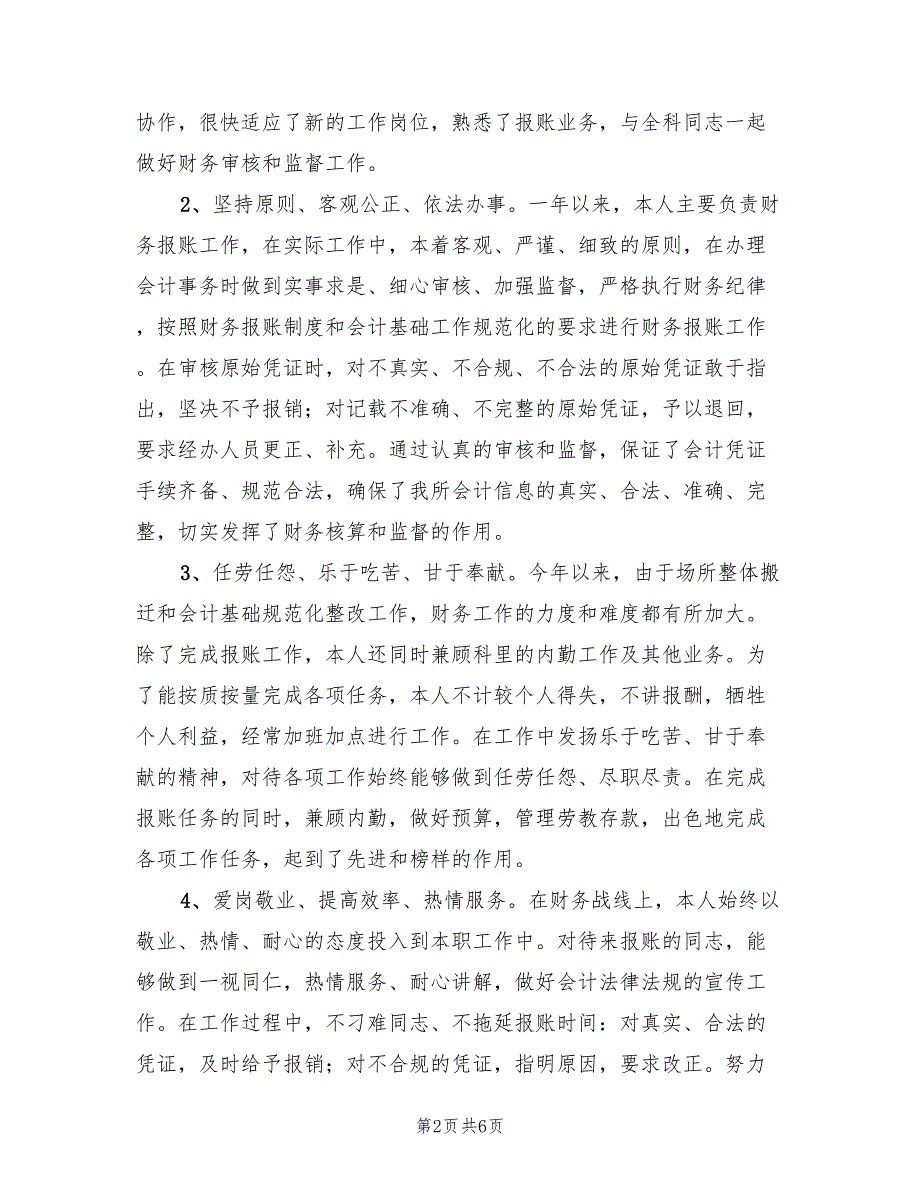 协作，很快适应了新的工作岗位，熟悉了报账业务，与全科同志一起
做好财务审核和监督工作。
2、坚持原则、客观公正、依法办事。一年以来，本人主要负责财
务报账工作，在实际工作中，本着客观、严谨、细致的原则，在办理
会计事务时做到实事求是、细心审核、加强监督，严格执行财务纪律
，按照财务报账制度和会计基础工作规范化的要求进行财务报账工作
。在审核原始凭证时，对不真实、不合规、不合法的原始凭证敢于指
出，坚决不予报销；对记载不准确、不完整的原始凭证，予以退回，
要求经办人员更正、补充。通过认真的审核和监督，保证了会计凭证
手续齐备、规范合法，确保了我所会计信息的真实、合法、准确、完
整，切实发挥了财务核算和监督的作用。
3、任劳任怨、乐于吃苦、甘于奉献。今年以来，由于场所整体搬
迁和会计基础规范化整改工作，财务工作的力度和难度都有所加大。
除了完成报账工作，本人还同时兼顾科里的内勤工作及其他业务。为
了能按质按量完成各项任务，本人不计较个人得失，不讲报酬，牺牲
个人利益，经常加班加点进行工作。在工作中发扬乐于吃苦、甘于奉
献的精神，对待各项工作始终能够做到任劳任怨、尽职尽责。在完成
报账任务的同时，兼顾内勤，做好预算，管理劳教存款，出色地完成
各项工作任务，起到了先进和榜样的作用。
4、爱岗敬业、提高效率、热情服务。在财务战线上，本人始终以
敬业、热情、耐心的态度投入到本职工作中。对待来报账的同志，能
够做到一视同仁，热情服务、耐心讲解，做好会计法律法规的宣传工
作。在工作过程中，不刁难同志、不拖延报账时间：对真实、合法的
凭证，及时给予报销；对不合规的凭证，指明原因，要求改正。努力
第2页 共6页